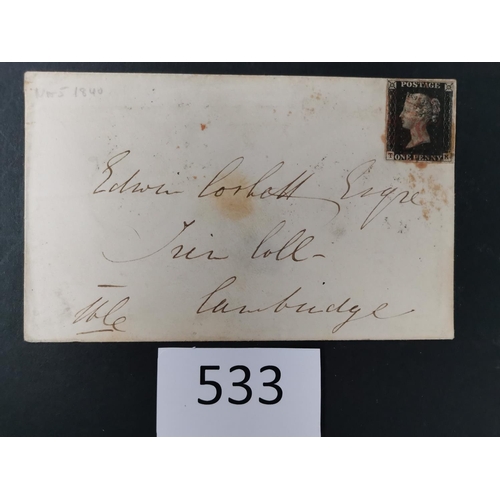 Nov 5 1840
POSTAGE
ONE PENNY
Edwin Corbett Esqre
Trin Coll-
Cambridge
533